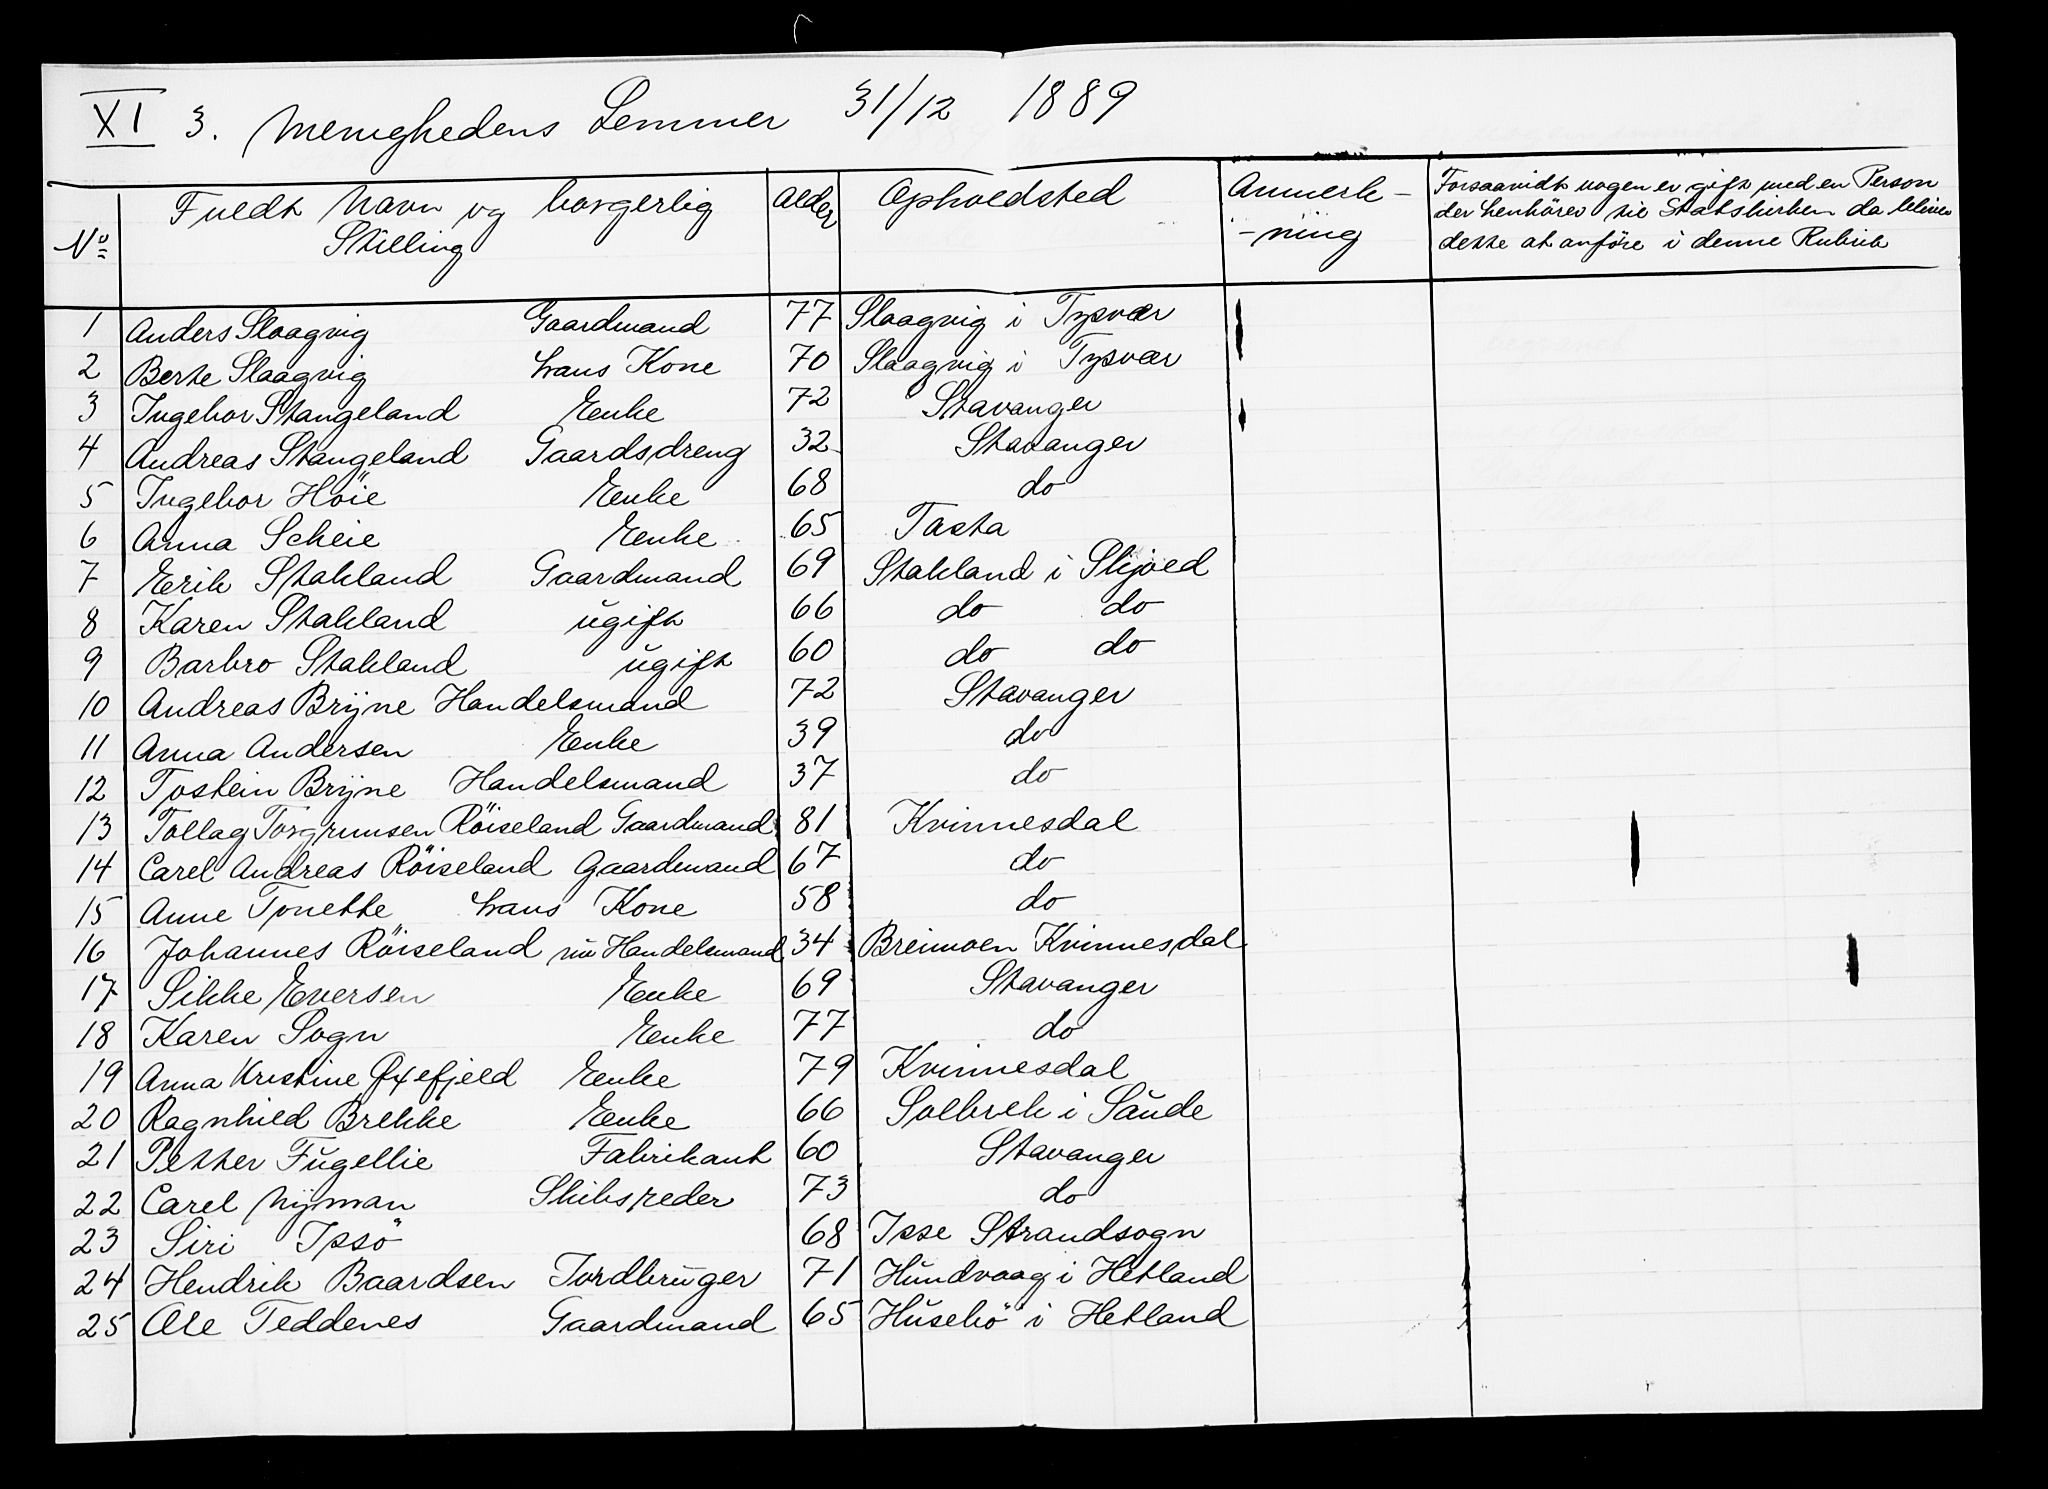 XI 3. Menighedens Lemmer 31/12 1889
No Fuldt Navn og borgerlig Stilling Alder Opholdsted Anmerk-ning Forsaavidt nogen er gift med en Person
der henhörer til Statskirken da bliver
dette at anföre i denne Rubrik
1 Anders Slaagvig Gaardmand 77 Slaagvig i Tysvær
2 Berte Slaagvig hans Kone 70 Slaagvig i Tysvær
3 Ingebor Stangeland Enke 72 Stavanger
4 Andreas Stangeland Gaardsdreng 32 Stavanger
5 Ingebor Höie Enke 68 do
6 Anna Scheie Enke 65 Tasta
7 Erik Stakland Gaardmand 69 Stakland i Skjold
8 Karen Stakland ugift 66 do do
9 Barbro Stakland ugift 60 do do
10 Andreas Bryne Handelsmand 72 Stavanger
11 Anna Andersen Enke 39 do
12 Tostein Bryne Handelsmand 37 do
13 Tollag Torgrimsen Röiseland Gaardmand 81 Kvinnesdal
14 Carel Andreas Röiseland Gaardmand 67 do
15 Anne Tonette hans Kone 58 do
16 Johannes Röiseland nu Handelsmand 34 Breimoen Kvinnesdal
17 Sikke Eversen Enke 69 Stavanger
18 Karen Sogn Enke 77 do
19 Anna Kristine Øxefjeld Enke 79 Kvinnesdal
20 Ragnhild Brekke Enke 66 Solbrek i Saude
21 Petter Fugellie Fabrikant 60 Stavanger
22 Carel Nyman Skibsreder 73 do
23 Siri Ipsö 68 Isse Strandsogn
24 Hendrik Baardsen Jordbruger 71 Hundvaag i Hetland
25 Ole Teddenes Gaardmand 65 Husebö i Hetland